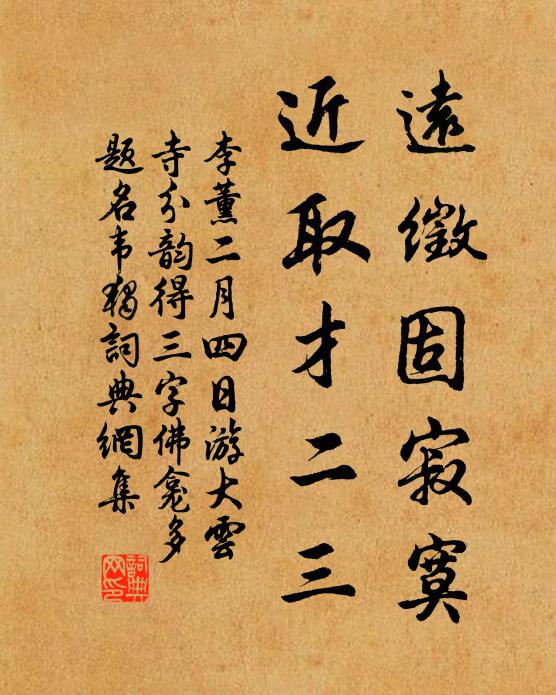 遠徵固寂寞
近取才二三
李薰二月四日游大雲
寺分韵得三字佛龛多
题名韦獨詞典網集
詞典
网印